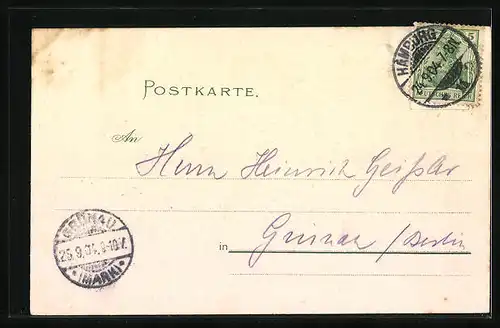 HAMBURG
25.9.04. 7-8N
5
DEUTSCHES REICH
POSTKARTE.
An
Herrn Heinrich Geißler
GRÜNAU
26.9.04. 9-10V.
* (MARK) *
in Grünau / Berlin